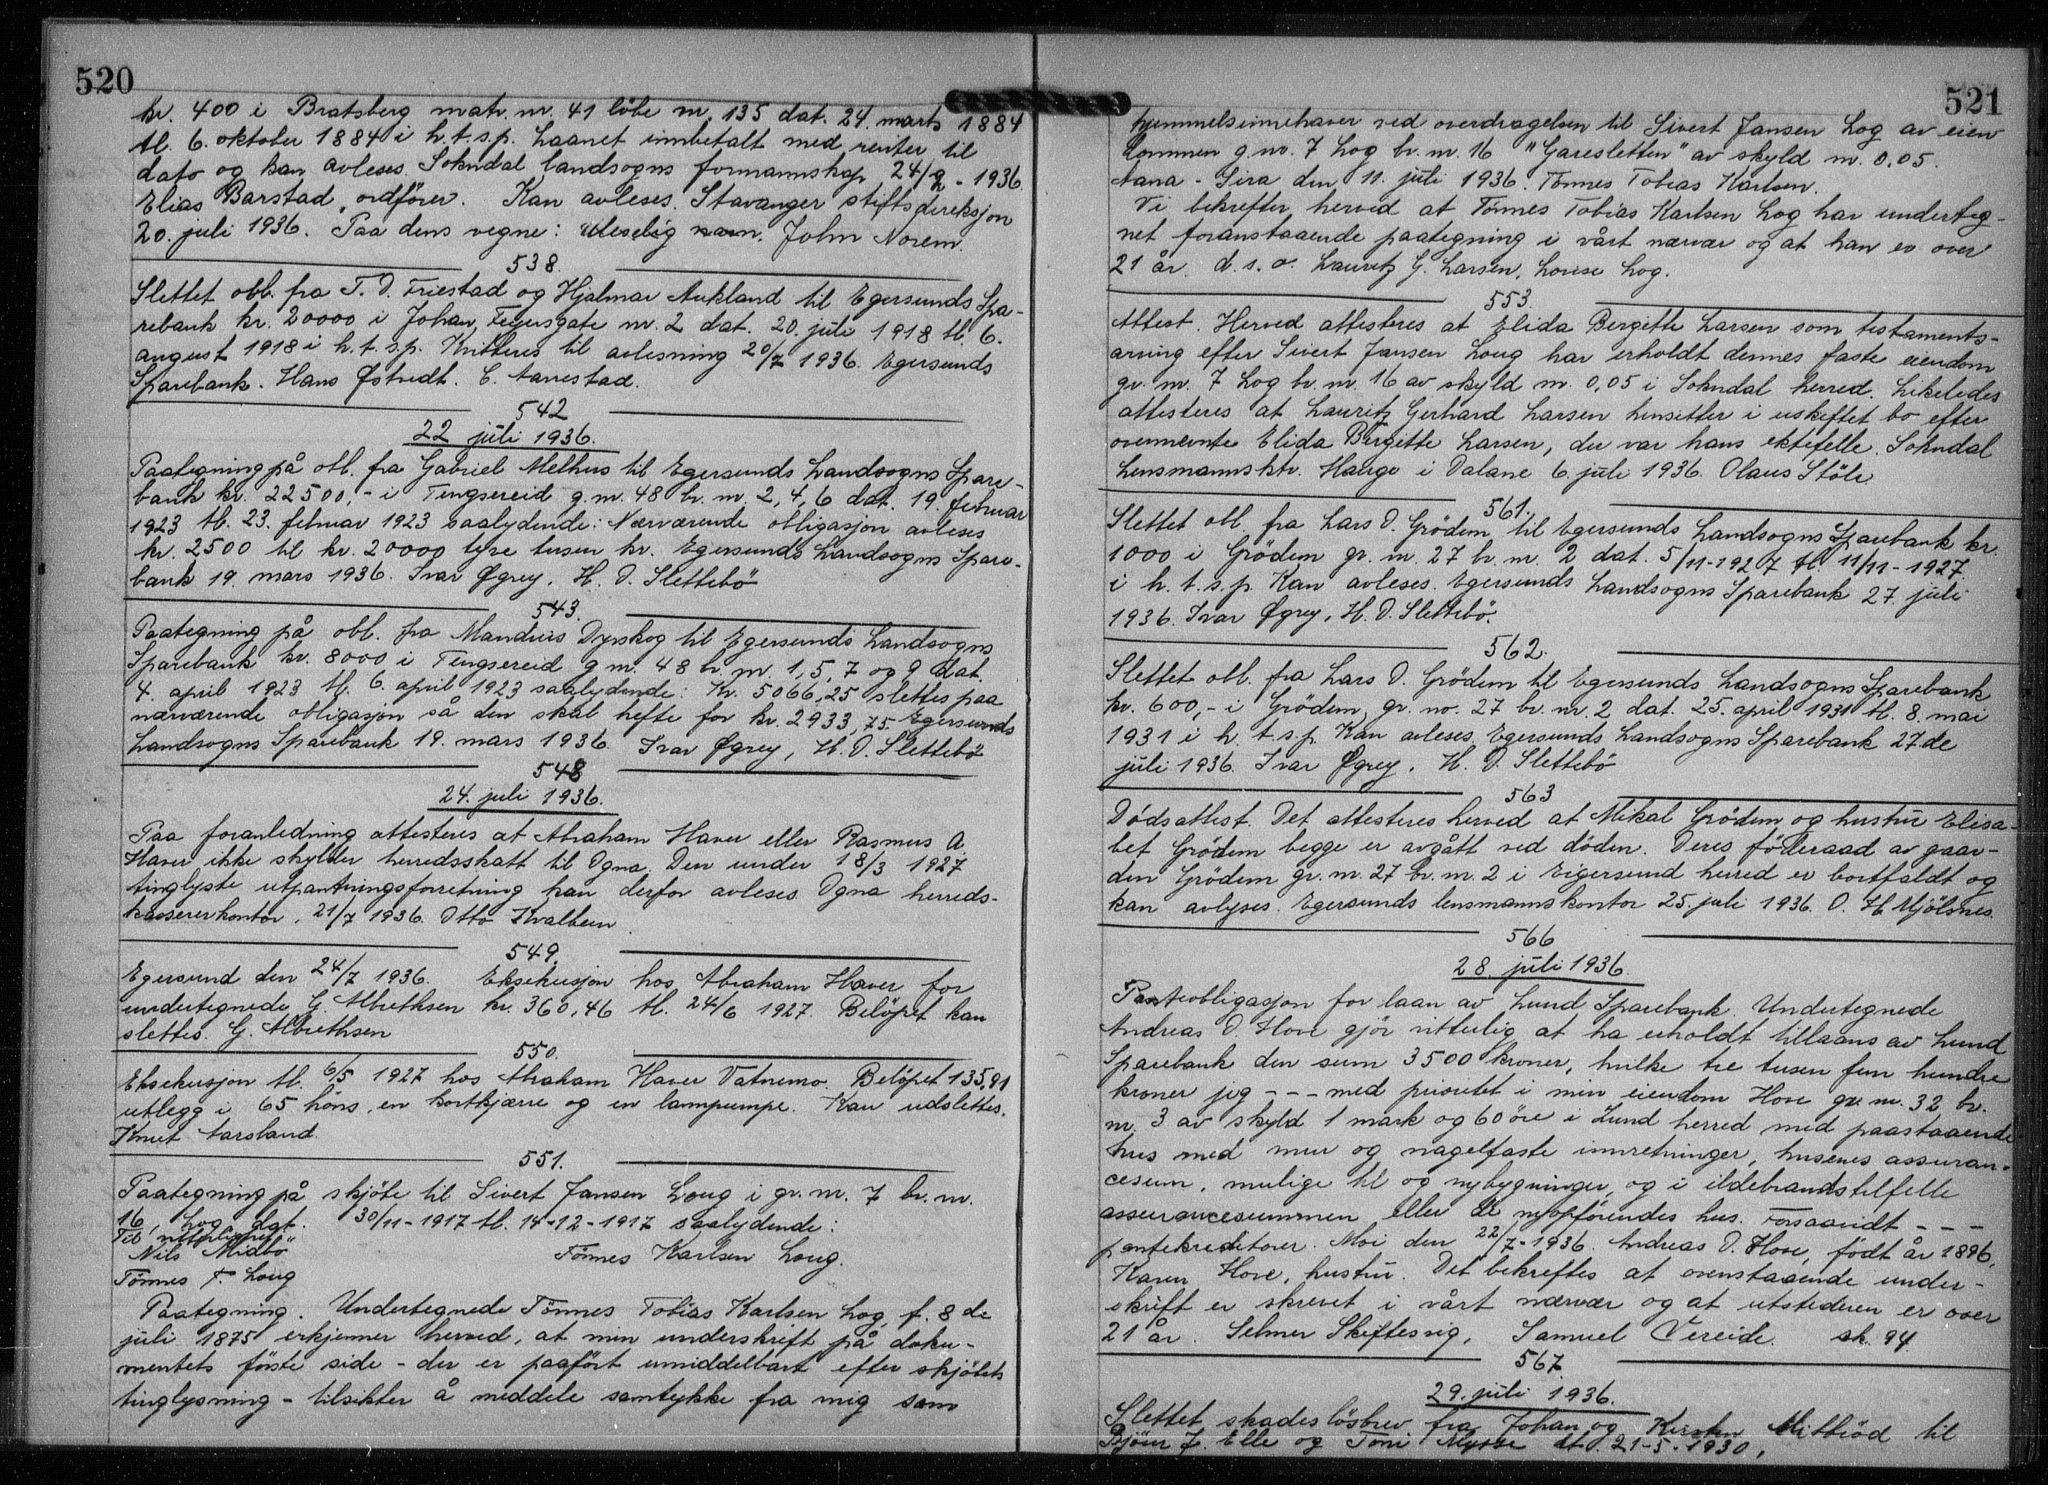 520
kr. 400 i Bratsberg matr. nr. 41 löbe nr. 135 dat. 24. marts 1884
tl. 6. oktober 1884 i h.t.s.p. Laanet innbetalt med renter til
dato og kan avleses. Sokndal landsogns formannskap 24/2 - 1936
Elias Barstad, ordförer. Kan avleses. Stavanger stiftsdireksjon
20. juli 1936. Paa dens vegne: uleselig navn. John Norem.
538
Slettet obl. fra T. O. Friestad og Hjalmar Aukland til Egersunds Spa-
rebank kr. 20000 i Johan Feyersgate nr. 2 dat. 20. juli 1918 tl. 6.
august 1918 i h.t.s.p. Kvitteres til avlesning 20/7 1936. Egersunds
Sparebank. Hans Østvedt. C. Aarrestad.
542
22 juli 1936.
Paategning på obl. fra Gabriel Melhus til Egersunds Landsogns Spare-
bank kr. 22500,- i Tengsereid g.nr. 48 br. nr. 2, 4, 6 dat. 19. februar
1923 tl. 23. februar 1923 saalydende: Nærværende obligasjon avleses
kr. 2500 til kr. 20000 tyve tusen kr. Egersunds Landsogns Spare-
bank 19. mars 1936. Ivar Øgrey. H. O. Slettebö
543.
Paategning på obl. fra Mandius Dyrskog til Egersunds Landsogns
Sparebank kr. 8000 i Tengsereid g.nr. 48 br. nr. 1, 5, 7 og 9 dat.
4. april 1923 tl. 6. april 1923 saalydende: Kr. 5066,25 slettes paa
nærværende obligasjon så den skal hefte for kr. 2933,75. Egersunds
Landsogns Sparebank 19. mars 1936. Ivar Øgrey, H. O. Slettebö
548
24. juli 1936.
Paa foranledning attesteres at Abraham Haver eller Rasmus A.
Haver ikke skylder herredsskatt til Ogna. Den under 18/3 1927
tinglyste utpantningsforretning kan derfor avleses. Ogna herreds-
kassererkontor, 21/7 1936. Otto Kvalbein.
549.
Egersund den 24/7 1936. Eksekusjon hos Abraham Haver for
undertegnede G. Albrethsen kr. 360,46 tl. 24/6 1927. Belöpet kan
slettes. G. Albrethsen
550.
Eksekusjon tl. 6/5 1927 hos Abraham Haver Vatnemo. Belöpet 135,91
utlegg i, 65 höns, en kortkjærre og en lampumpe. Kan udslettes.
Knut Aarsland.
551.
Paategning på skjöte til Sivert Jansen Loug i gr. nr. 7 br. nr.
16, Log dat. 30/11-1917 tl. 14-12-1917 saalydende:
Til vitterlighet
Nils Midbö Tönnes Karlsen Loug.
Tönnes T. Loug
Paategning. Undertegnede Tönnes Tobias Karlsen Log, f. 8 de
juli 1875 erkjenner herved, at min underskrift på doku-
mentets förste side - der er paafört umiddelbart efter skjötets
tinglysning - tilsikter å meddele samtykke fra mig som
521
hjemmelsinnehaver ved overdragelsen til Sivert Jansen Log av eien
dommen g. nr. 7 Log br. nr. 16 "Garesletten" av skyld m. 0,05.
Aana-Sira den 11. juli 1936. Tönnes Tobias Karlsen.
Vi bekrefter herved at Tönnes Tobias Karlsen Log har underteg-
net foranstaaende paategning i vårt nærvær og at han er over
21 år. d. s. o. Lauritz G. Larsen, Lovise Log.
553.
Attest. Herved attesteres at Elida Bergette Larsen som testaments-
arving efter Sivert Jansen Loug har erholdt dennes faste eiendom
gr. nr. 7 Log br. nr. 16 av skyld m. 0,05 i Sokndal herred. Likeledes
attesteres at Lauritz Gerhard Larsen hensitter i uskiftet bo efter
ovennevnte Elida Birgette Larsen, der var hans ektefelle. Sokndal
Lensmannsktr. Hauge i Dalane 6 juli 1936. Olaus Stöle.
561.
Slettet obl. fra Lars O. Grödem til Egersunds Landsogns Sparebank kr.
1000 i Grödem gr. nr. 27 br. nr. 2 dat. 5/11-1927 tl. 11/11-1927
i h.t.s.p. Kan avleses. Egersunds Landsogns Sparebank 27. juli
1936. Ivar Øgrey, H. O. Slettebö.
562.
Slettet obl. fra Lars O. Grödem til Egersunds Landsogns Sparebank
kr. 600,- i Grödem, gr. no. 27 br. nr. 2 dat. 25. april 1931 tl. 8. mai
1931 i h.t.s.p. Kan avleses, Egersunds Landsogns Sparebank 27.de
juli 1936. Ivar Øgrey. H. O. Slettebö
563
Dödsattest. Det attesteres herved at Mikal Grödem og hustru Elisa-
bet Grödem begge er avgått ved döden. Deres föderaad av gaar-
den Grödem gr. nr. 27 br. nr. 2 i Eigersund herred er bortfaldt og
kan avlyses. Egersunds lensmannskontor 25. juli 1936. O. H. Mjölsnes.
566
28. juli 1936.
Panteobligasjon for laan av Lund Sparebank. Undertegnede
Andreas O. Hove gjör vitterlig at ha erholdt tillaans av Lund
Sparebank den sum 3500 kroner, hvilke tre tusen fem hundre
kroner jeg --- med prioritet i min eiendom Hove gr. nr. 32 br.
nr. 3 av skyld 1 mark og 60 öre i Lund herred med paastaaende
hus med mur og nagelfaste innretninger, husenes assuran-
cesum, mulige til og nybygninger, og i ildebrandstilfelle
assurancesummen eller de nyopförendes hus. Forsaavidt ---
pantekreditorer. Moi den 22/7-1936. Andreas O. Hove, födt år 1896,
Karen Hove, hustru. Det bekreftes at ovenstaaende under-
skrift er skrevet i vårt nærvær og at utstederen er over
21 år. Selmer Skiftesvig, Samuel Vereide. sk. 94
567.
29. juli 1936.
Slettet skadeslösbrev fra Johan og Kirsten Mitbröd til
Björn J. Elle og Toni dt. 21-5-1930,